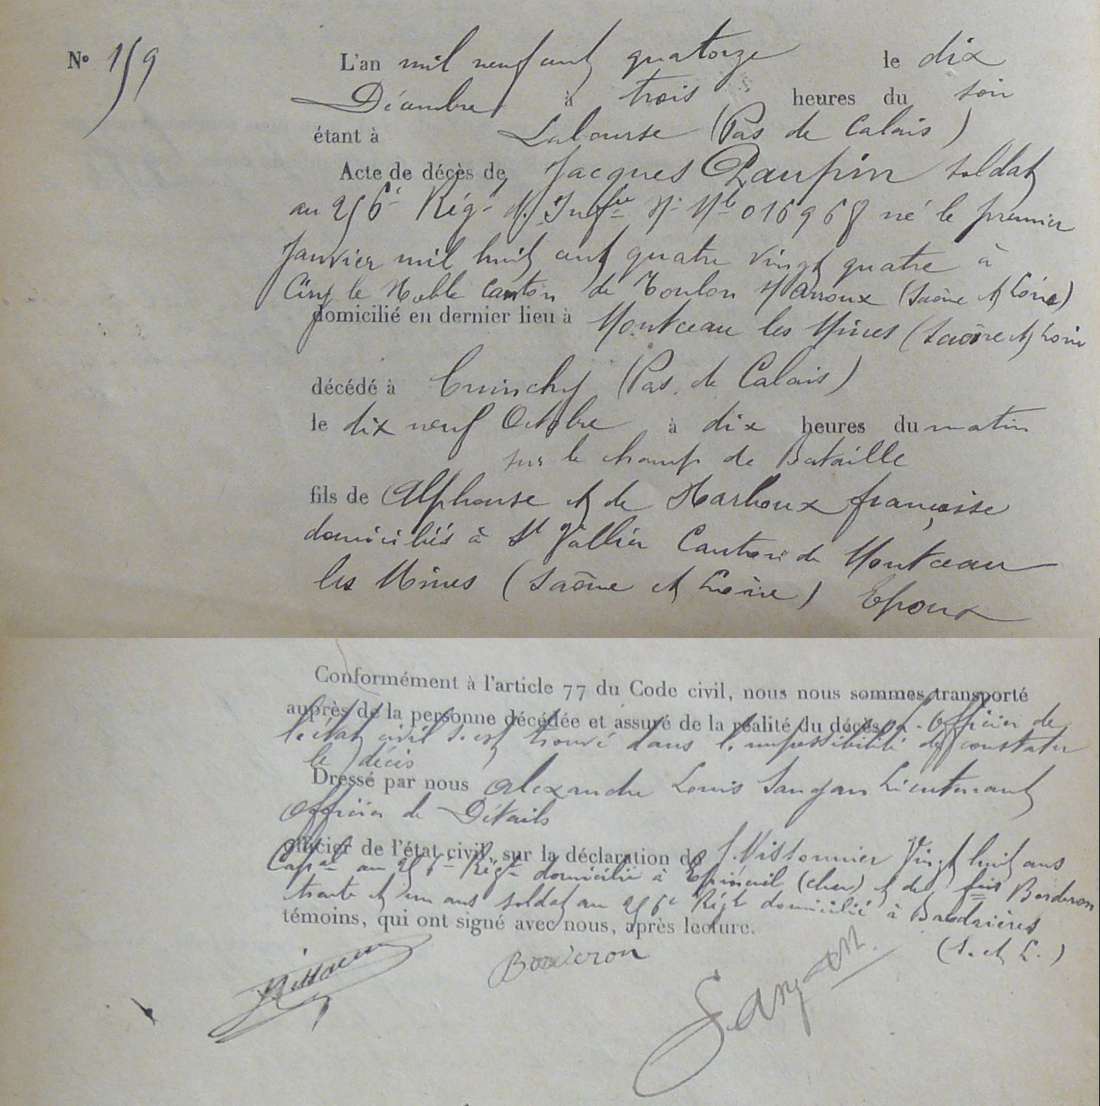 N° 159
L'an mil neuf cent quatorze le dix
Décembre à trois heures du soir
étant à Labourse (Pas de Calais)
Acte de décès de Jacques Paupin soldat
au 256e Régt d'Infrie No Mle 016968 né le premier
Janvier mil huit cent quatre vingt quatre à
Ciry le Noble canton de Toulon s/ Arroux (Saône et Loire)
domicilié en dernier lieu à Montceau les Mines (Saône et Loire
décédé à Cuinchy (Pas de Calais)
le dix neuf Octobre à dix heures du matin
sur le champ de Bataille
fils de Alphonse et de Marloux françoise
domiciliés à St Vallier Canton de Montceau
les Mines (Saône et Loire) Epoux
Conformément à l'article 77 du Code civil, nous nous sommes transporté
auprès de la personne décédée et assuré de la réalité du décès L'officier de
l'état civil s'est trouvé dans l'impossibilité de constater
le décès
Dressé par nous Alexandre Louis Sangan Lieutenant
Officier de Détails
officier de l'état civil, sur la déclaration de Vingt huit ans
Capal au 256e Régt domicilié à Epineuil (cher) et de Borderon
trente et un ans soldat au 256e Régt domicilié à Baudrières
témoins, qui ont signé avec nous, après lecture.
(S. et L.)
Borderon
Sangan